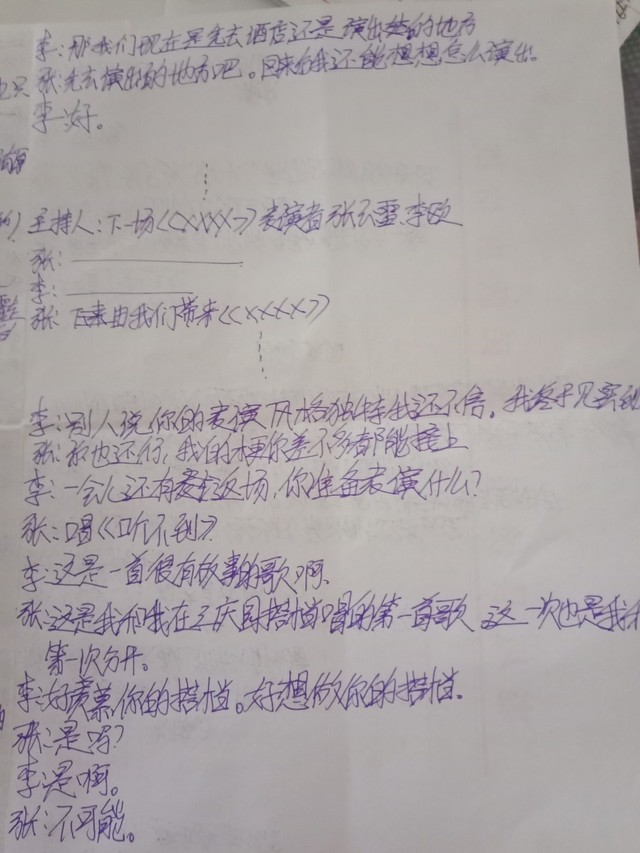 李:那我们现在是先去酒店还是演出的地方
张:先去演出的地方吧。回来后我还能想想怎么演出。
李:好。
主持人:下一场《XXXX》表演者张云雷、李欧
张:
李:
张:下来由我们带来《XXXX》
李:别人说你的表演风格独特我还不信。我终于见实
张:你也还行,我的梗你差不多都能接上
李:一会儿还有返场,你准备表演什么?
张:唱《听不到》
李:这是一首很有故事的歌啊。
张:这是我和我在三庆园搭档唱的第一首歌 这一次也是我
第一次分开。
李:好羡慕你的搭档。好想做你的搭档。
张:是吗?
李:是啊。
张:不可能。